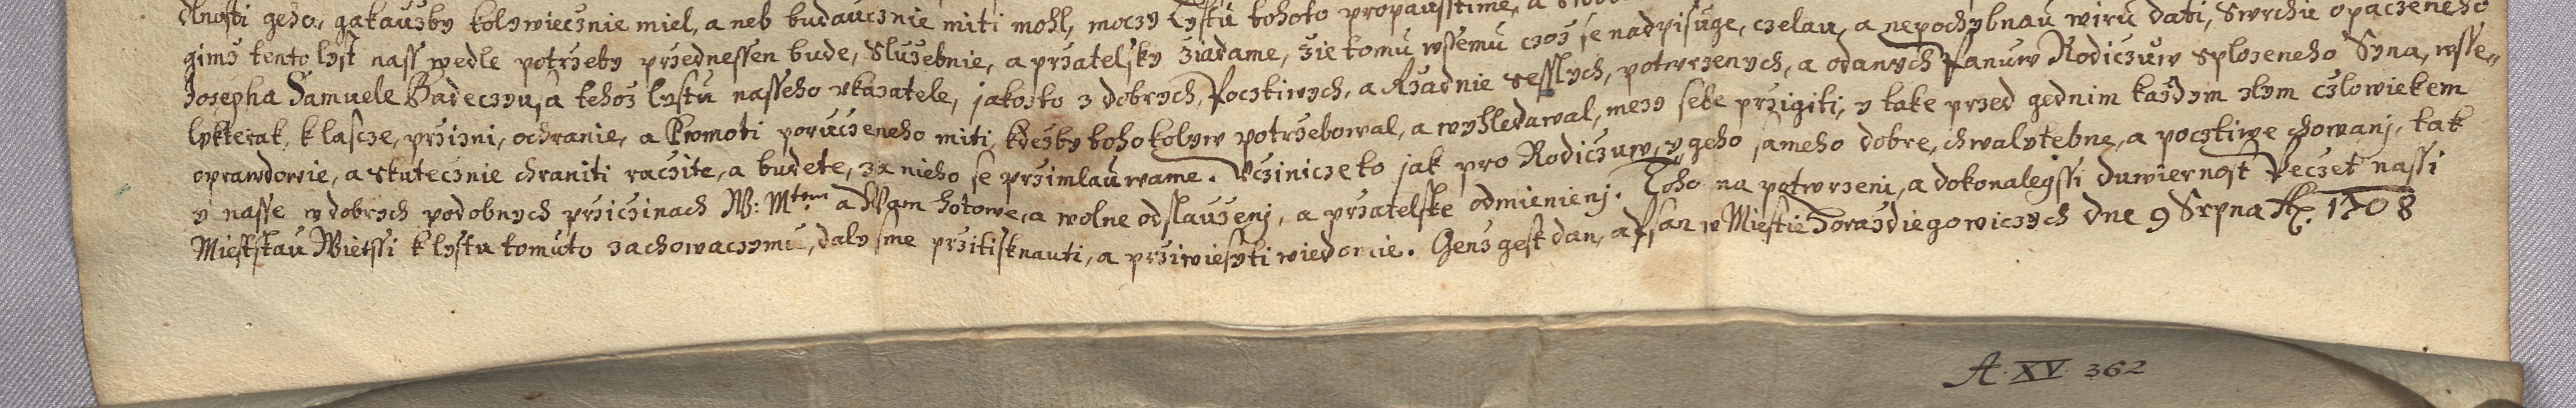 dlnosti geho, gakaużby kolywiecznie miel, a neb budaucznie miti mohl, moczy Lystu tohoto propausstime, a
gimż tento lyst nass wedle potrzeby przednessen bude, Służebnie, a przatelsky żiadame, żie tomu wssemu czoż se nadpisuge, czelau, a nepochybnau wiru dati, Swrchu opaczeneho
Josepha Samuele Badeczyu, a tehoż lystu nasseho vkazatele, jakożto z dobrych, Pocztiwych, a Rżadnie sesslych, potwrzenych, a odanych Panuw Rodiczuw Splozeneho Syna, wsse„
lykterak, k lascze, przizni, ochranie, a Pomoti poruczeneho miti, kdeżby toho kolyw potrzebowal, a wyhledawal, mezy sebe przigiti, y take przed gednim każdym zlym czlowiekem
oprawdowie, a skutecznie chraniti raczite, a budete, za nieho se przimlauwame. Vcziniczeto jak pro Rodiczuw, y geho sameho dobre, chwalytebne, a pocztiwe chowanj, tak
y nasse w dobrych podobnych przicżinach W: Mtem a Wam hotowe, a wolne odslauzenj, a przatelske odmienienj. Toho na potwrzeni, a dokonalegssi duwiernost Peczet nassi
Miestskau Wietssi k lystu tomuto zachowaczymu, daly sme przitisknauti, a prziwiesyti wiedomie. Genż gest dan, a psan w Miestie Horażdiegowiczych dne 9 Srpna Ao. 1708
A. XV 362